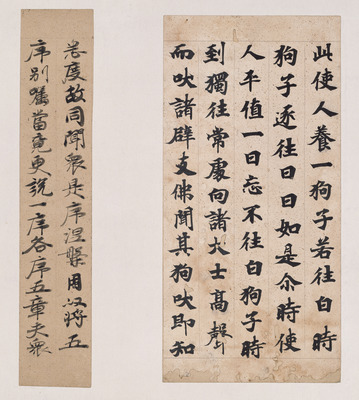 此使人養一狗子若往白時
狗子逐往日日如是尒時使
人平值一日忘不往白狗子時
到獨往常處向諸大士高聲
而吠諸辟支佛聞其狗吠即知
度故同聞衆是序涅槃用以將五
序別當竟更説一序各序五章夫衆